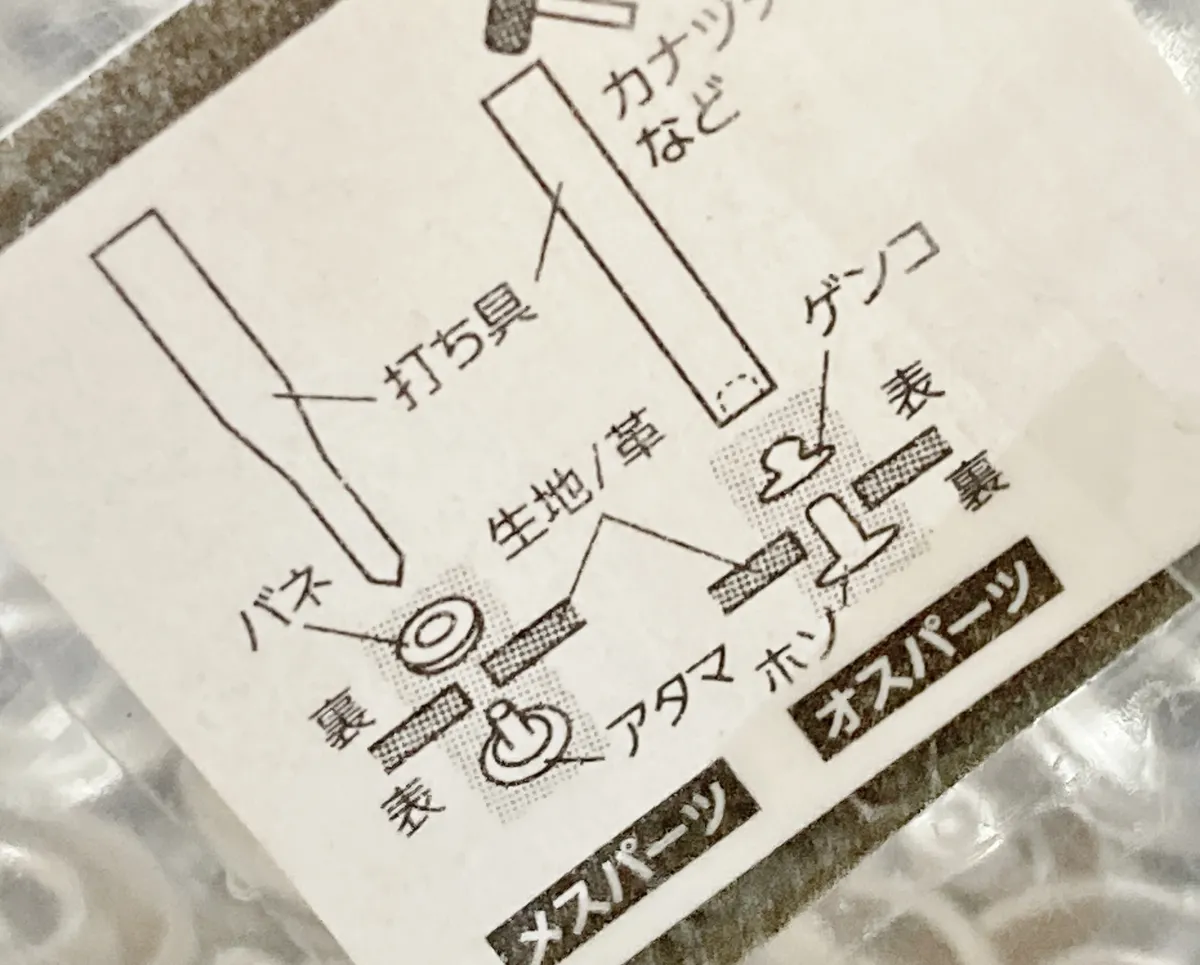 カナヅチ
など
打ち具
ゲンコ
表
裏
生地/革
バネ
裏
表
アタマ
ホソ
オスパーツ
メスパーツ